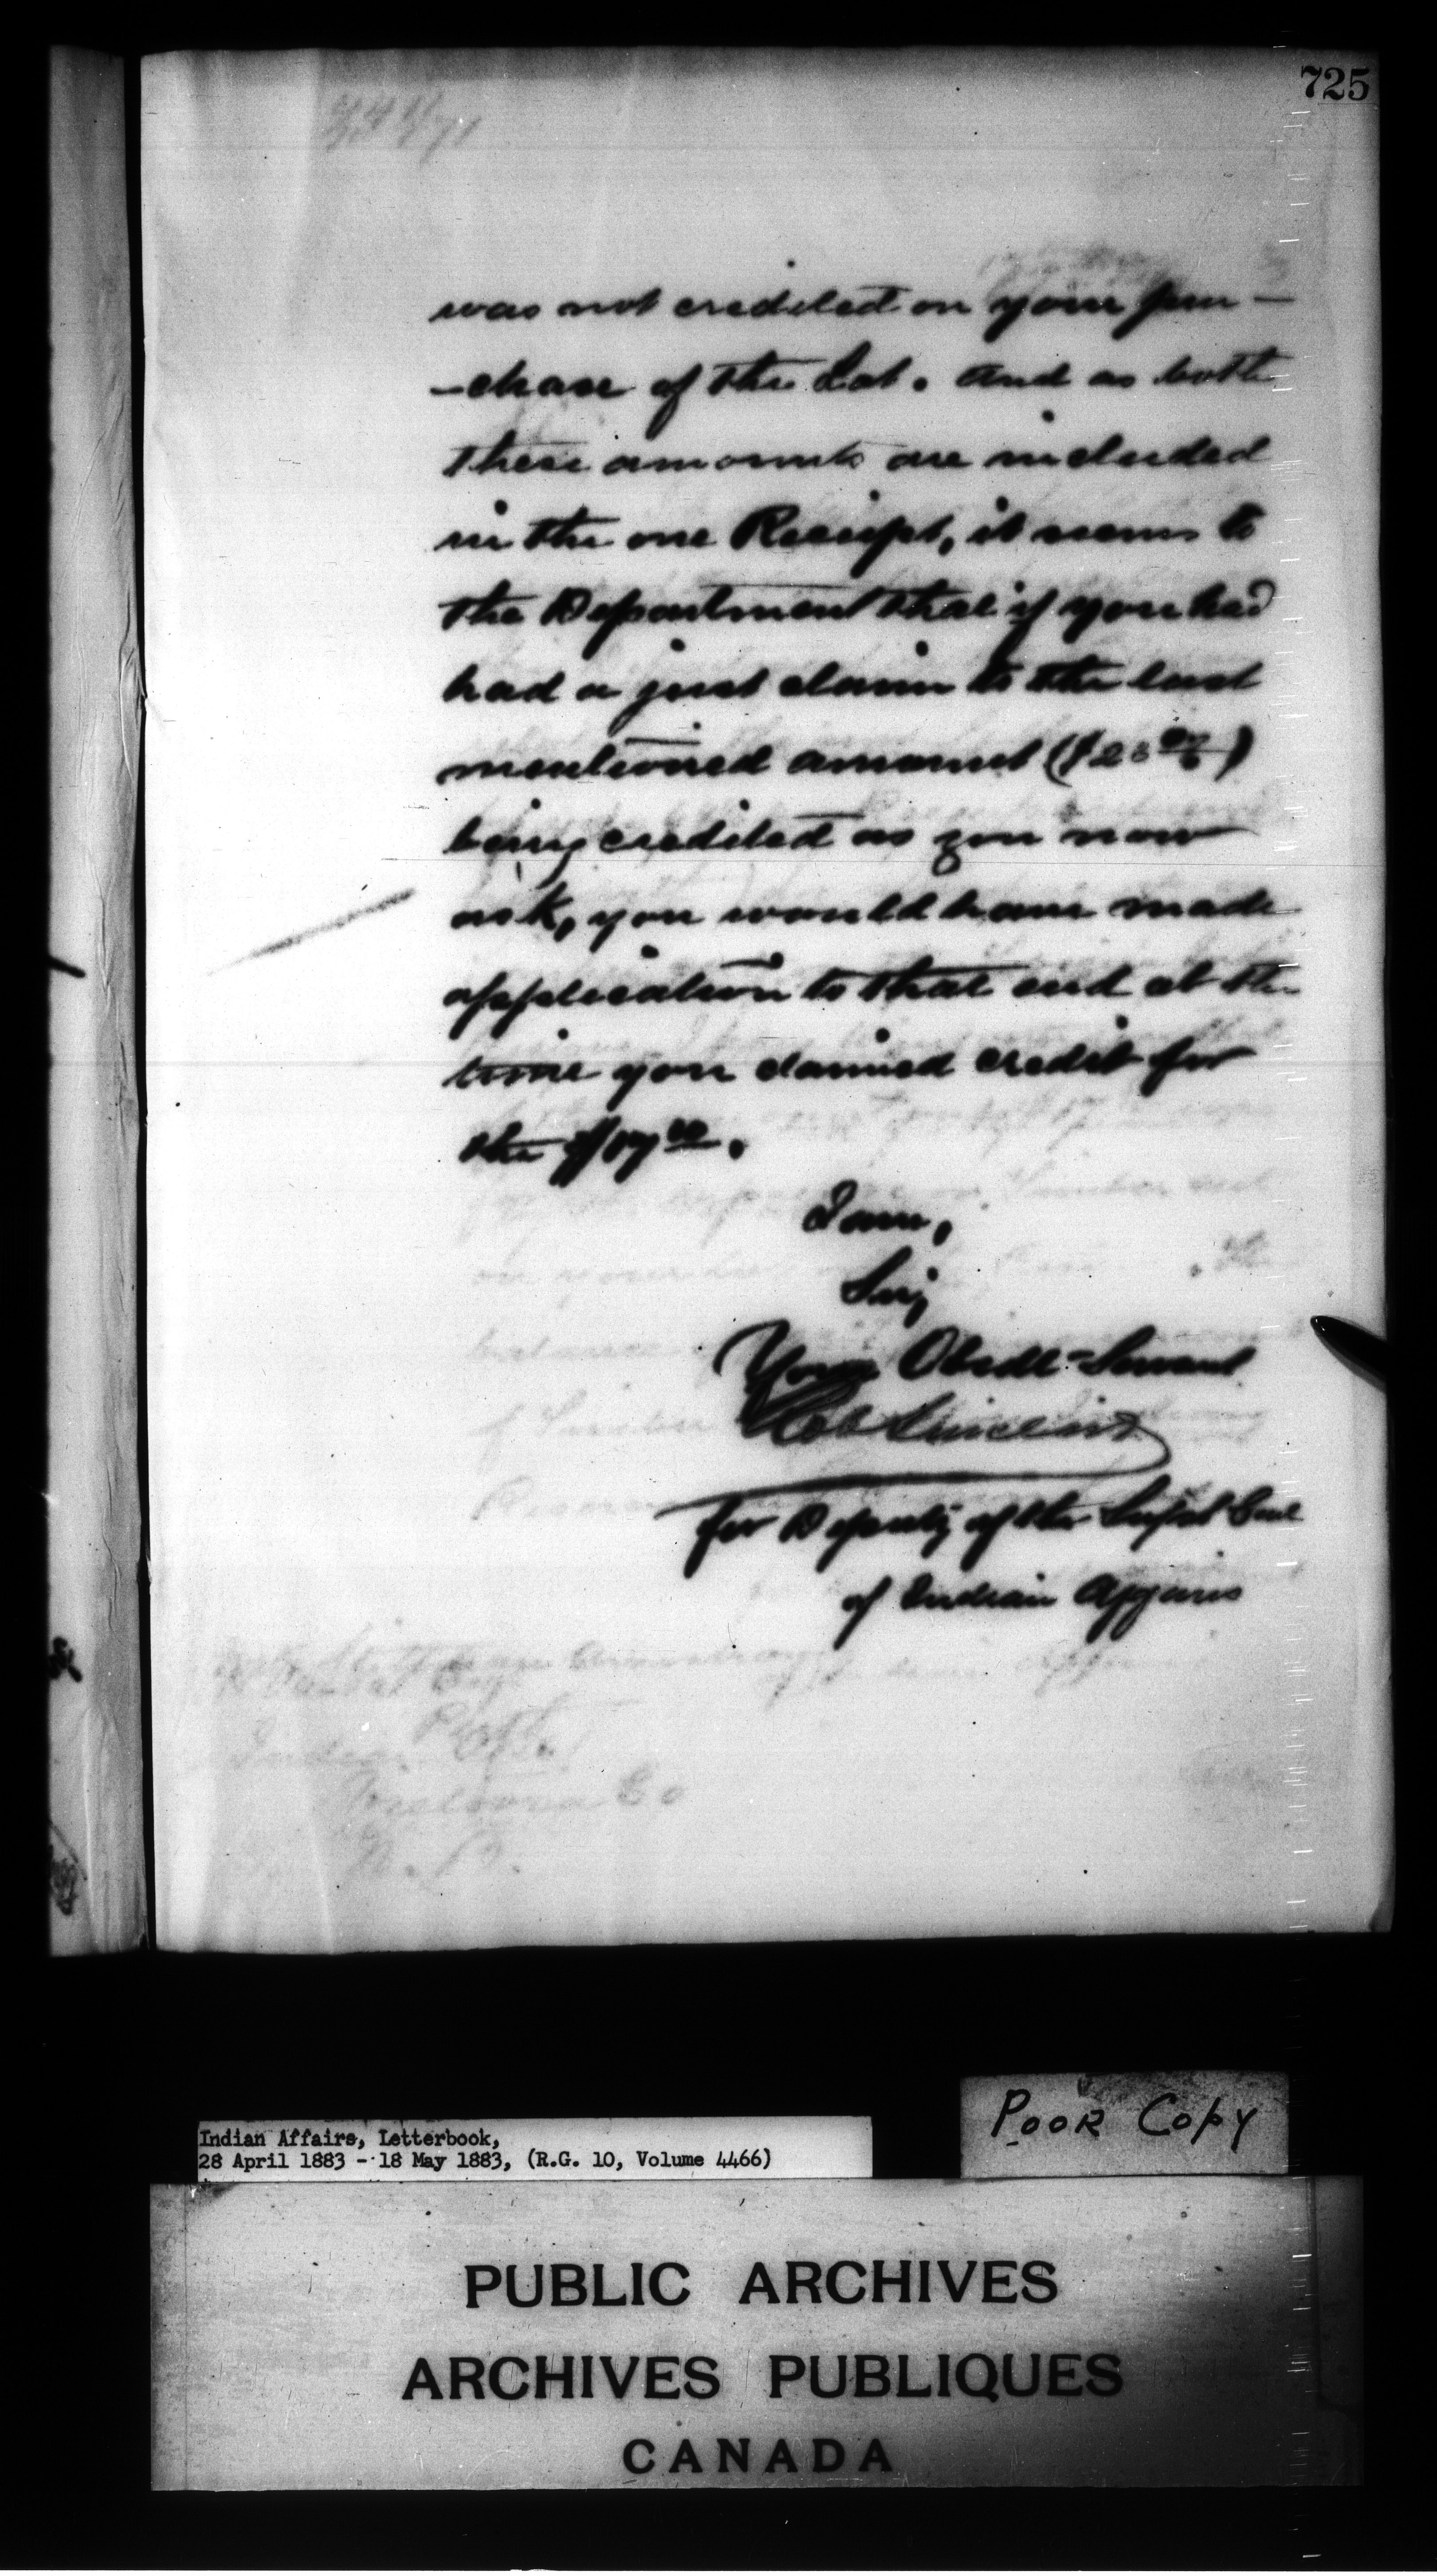 725
was not credited on your pur-
-chase of the Lot. And as both
these amounts are included
in the one Receipt, it seems to
the Department that if you had
had a just claim to the last
mentioned amount
being credited as you now
ask, you would have made
application to that end at the
time you claimed credit for
the
I am,
Sir,
Your Obedt Servant
Rob Sinclair
for Deputy of the Supt Genl
of Indian Affairs
Poor Copy
Indian Affairs, Letterbook,
28 April 1883 - 18 May 1883, (R.G. 10, Volume 4466)
PUBLIC ARCHIVES
ARCHIVES PUBLIQUES
CANADA